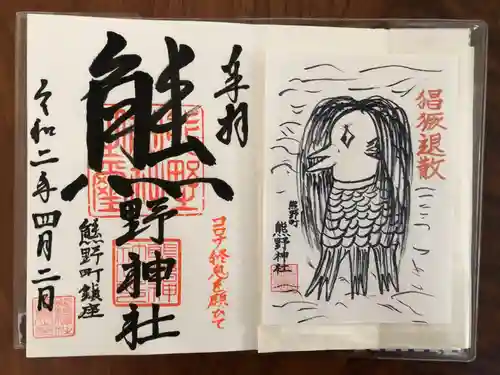 奉拝
熊野神社
熊野町鎮座
コロナ終息を願ひて
令和二年四月二日
猖獗退散
熊野町
熊野神社